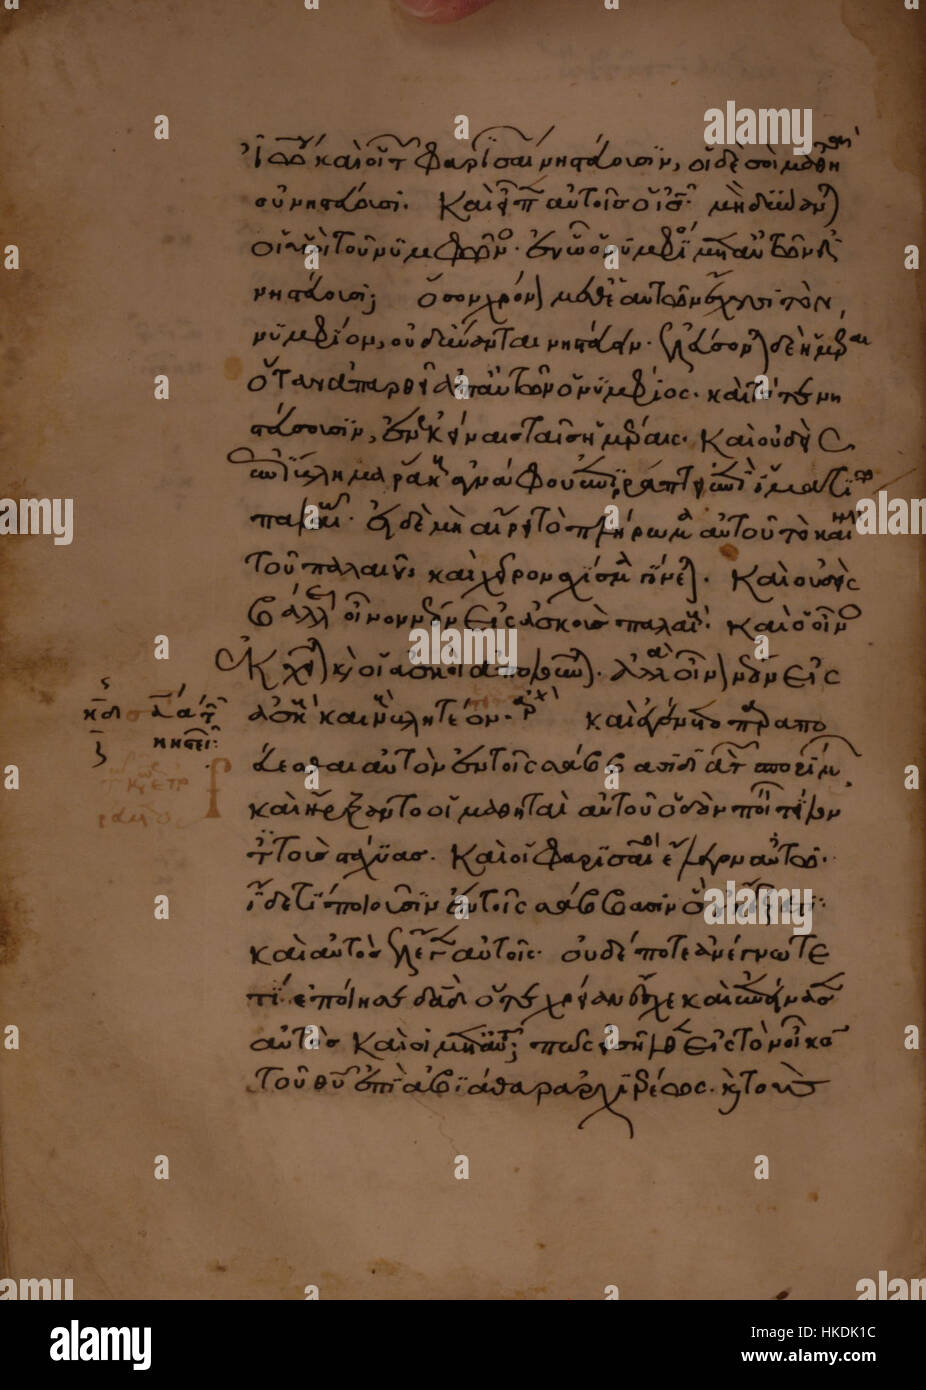 Ἰωάννου καὶ οἱ τῶν Φαρισαίων νηστεύουσιν, οἱ δὲ σοὶ μαθηταὶ
οὐ νηστεύουσι. Καὶ εἶπεν αὐτοῖς ὁ ι̅ς̅· μὴ δύνανται
οἱ υἱοὶ τοῦ νυμφῶνος· ἐν ᾧ ὁ νυμφίος μετ' αὐτῶν ἐστι
νηστεύειν; ὅσον χρόνον μεθ' ἑαυτῶν ἔχουσι τὸν
νυμφίον, οὐ δύνανται νηστεύειν· ἐλεύσονται δὲ ἡμέραι
ὅταν ἀπαρθῇ ἀπ' αὐτῶν ὁ νυμφίος· καὶ τότε νη
στεύσουσιν, ἐν ἐκείναις ταῖς ἡμέραις. Καὶ οὐδεὶς
ἐπίβλημα ῥάκους ἀγνάφου ἐπιράπτει ἐπὶ ἱματίῳ
παλαιῷ· εἰ δὲ μὴ αἴρει τὸ πλήρωμα αὐτοῦ τὸ καινὸν
τοῦ παλαιοῦ, καὶ χεῖρον σχίσμα γίνεται. Καὶ οὐδεὶς
βάλλει οἶνον νέον εἰς ἀσκοὺς παλαιούς· καὶ ὁ οἶνος
ἐκχεῖται καὶ οἱ ἀσκοὶ ἀπολοῦνται. ἀλλὰ οἶνον νέον εἰς
ἀσκοὺς καινοὺς βλητέον. καὶ ἐγένετο παραπο
ρεύεσθαι αὐτὸν ἐν τοῖς σάββασι διὰ τῶν σπορίμων
καὶ ἤρξαντο οἱ μαθηταὶ αὐτοῦ ὁδὸν ποιεῖν τίλλον
τες τοὺς στάχυας. Καὶ οἱ Φαρισαῖοι ἔλεγον αὐτῷ·
ἴδε τί ποιοῦσιν ἐν τοῖς σάββασιν ὃ οὐκ ἔξεστι·
καὶ αὐτὸς ἔλεγεν αὐτοῖς· οὐδέποτε ἀνέγνωτε
τί ἐποίησε δα̅δ̅ ὅτε χρείαν ἔσχε καὶ ἐπείνασεν
αὐτὸς καὶ οἱ μετ' αὐτοῦ; πῶς εἰσῆλθεν εἰς τὸν οἶκον
τοῦ θ̅υ̅ ἐπὶ ἀβιάθαρ ἀρχιερέως· καὶ τοὺς
alamy stock photo
HKDK1C
www.alamy.com